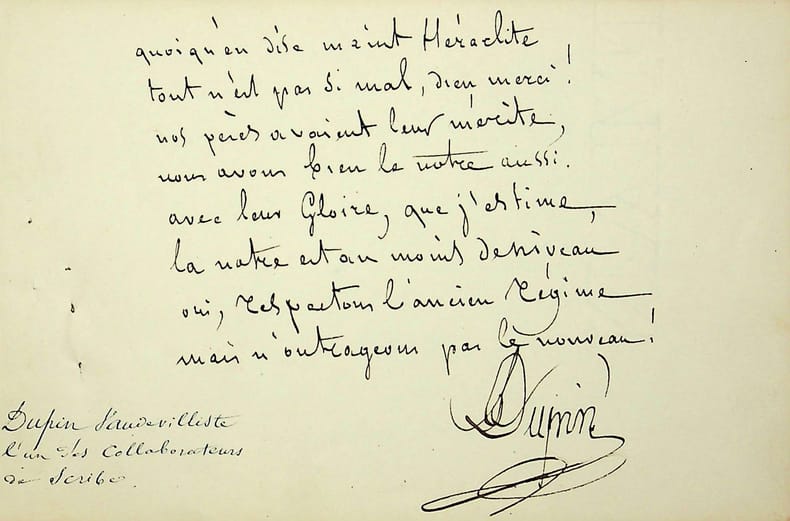 quoiqu'en dise maint Héraclite
tout n'est pas si mal, dieu merci !
nos pères avaient leur mérite,
nous avons bien le notre aussi.
avec leur Gloire, que j'estime,
la notre est au moins de niveau
oui, respectons l'ancien régime
mais n'outrageons pas le nouveau !
Dupin
Dupin Vaudevilliste
l'un des Collaborateurs
de Scribe.